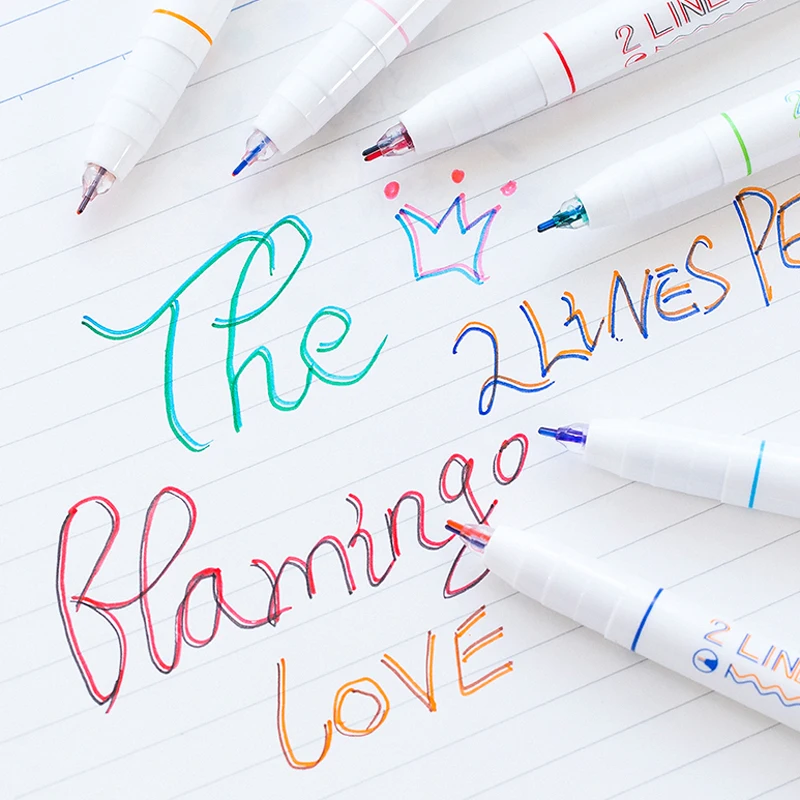 2 LINE
The
2 LINES PE
flamingo
LOVE
2 LINE